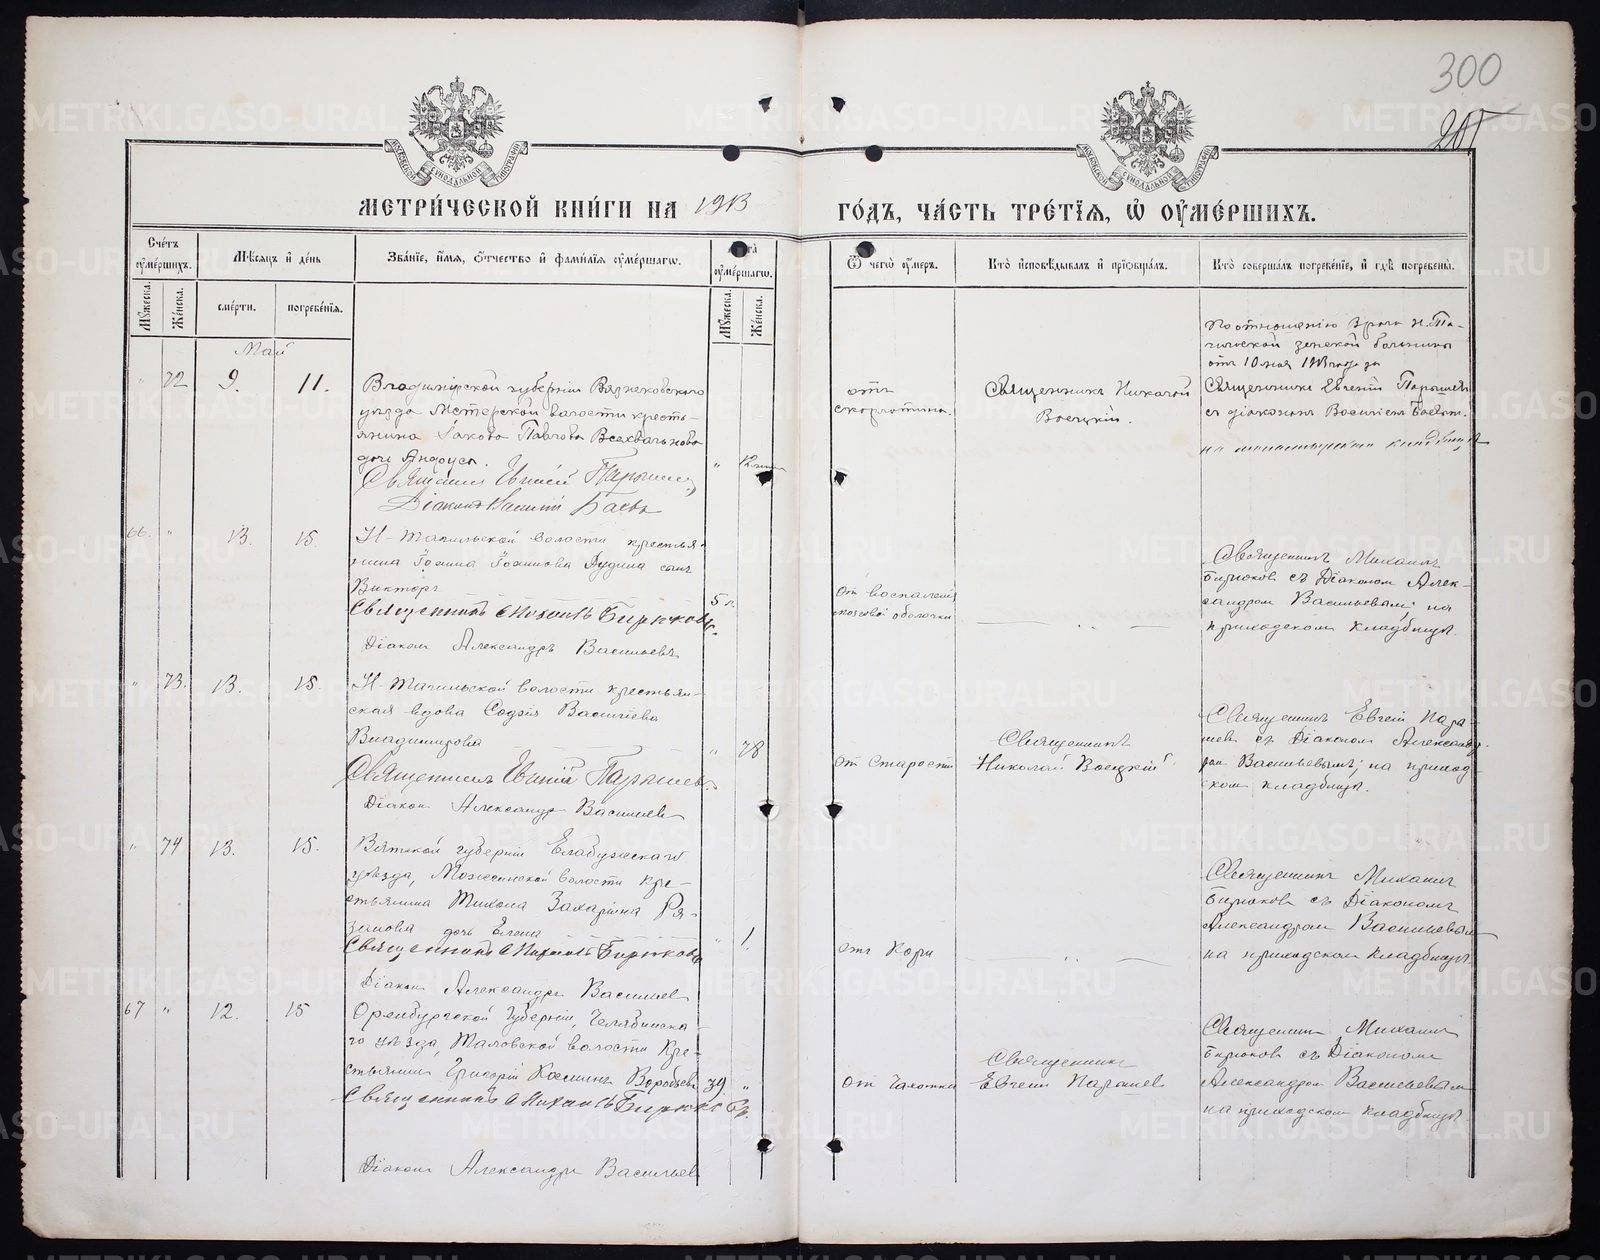 300
205
МЕТРИ́ЧЕСКОЙ КНИ́ГИ НА 1913 ГО́ДЪ, ЧА́СТЬ ТРЕ́ТІѦ, Ѡ҆ ОУ҆МЕ́РШИХЪ.
Сче́тъ оу҆ме́ршихъ.
Мѣ́сяцъ и҆ де́нь
Зва́ніе, и҆́мя, ѻ҆́тчество и҆ фами́лія оу҆ме́ршагѡ.
Лѣта̀ оу҆ме́ршагѡ.
Ѿ чегѡ̀ оу҆́меръ.
Кто̀ и҆сповѣ́дывалъ и҆ прїѡбща́лъ.
Кто̀ соверша́лъ погребе́ніе, и҆ гдѣ̀ погребены̀.
Му́жеска.
Же́нска.
сме́рти.
погребе́нія.
Му́жеска.
Же́нска.
Май
" 72 9. 11.
Владимірской губерніи Вязниковскаго
уѣзда Мстерской волости кресть-
янина Іакова Павлова
дочь
Священникъ Евгеній Парышев
Діаконъ Василій Баевъ
"
отъ
скарлатины.
Священникъ Николай
Воецкій.
По отношенію врача Н. Та-
гильской земской больницы
отъ 10 мая 1913 года за
Священникъ Евгеній Парышевъ
съ діакономъ Василіемъ Баевым.
на монастырскомъ кладбищѣ
66. " 13. 15.
Н-Тагильской волости крестья-
нина Іоанна Іоаннова Дудина сынъ
Викторъ
Священникъ Михаилъ Бирюковъ.
Діакон Александръ Васильевъ
5 л.
От воспаленія
мозговой оболочки
— " —
Священникъ Михаилъ
Бирюков съ Діаконом Алек-
сандром Васильевым; на
приходском кладбищѣ.
" 73. 13. 15.
Н-Тагильской волости крестьян-
ская вдова Софія Василіева
Владимирова
Священникъ Евгеній Парышев.
Діакон Александр Васильев
" 78
От старости
Священникъ
Николай Воецкій
Священникъ Евгеній Пары-
шев съ Діаконом Александ-
ром Васильевымъ; на приход-
ском кладбищѣ.
" 74 13. 15.
Вятской губерніи Елабужскаго
уѣзда, Можгинской волости кре-
стьянина Тихона Захаріина Ря-
занова дочь Елена
Священникъ Михаилъ Бирюковъ
Діакон Александръ Васильев
" 1.
отъ Кори
— " —
Священникъ Михаил
Бирюков съ Діакономъ
Александром Васильевым
на приходском кладбищѣ.
67 " 12. 15
Оренбургской Губерніи, Челябинска-
го уѣзда, Таловской волости Кре-
стьянин Григорій Космин Воробьев
Священникъ Михаилъ Бирюков
Діакон Александръ Васильев
39 "
От Чахотки
Священник
Евгеній Парышев
Священник Михаил
Бирюков съ Діаконом
Александром Васильевым
на приходском кладбищѣ